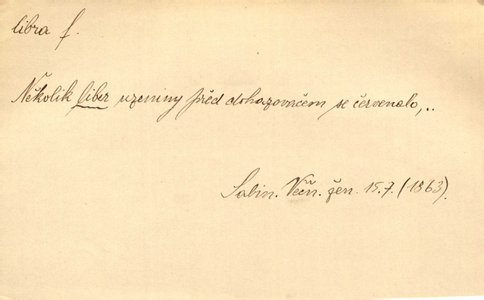 libra f.
Několik liber uzeniny před dohazovačem se červenalo,..
Sabin. Věčn. žen. 15.7. (1863).